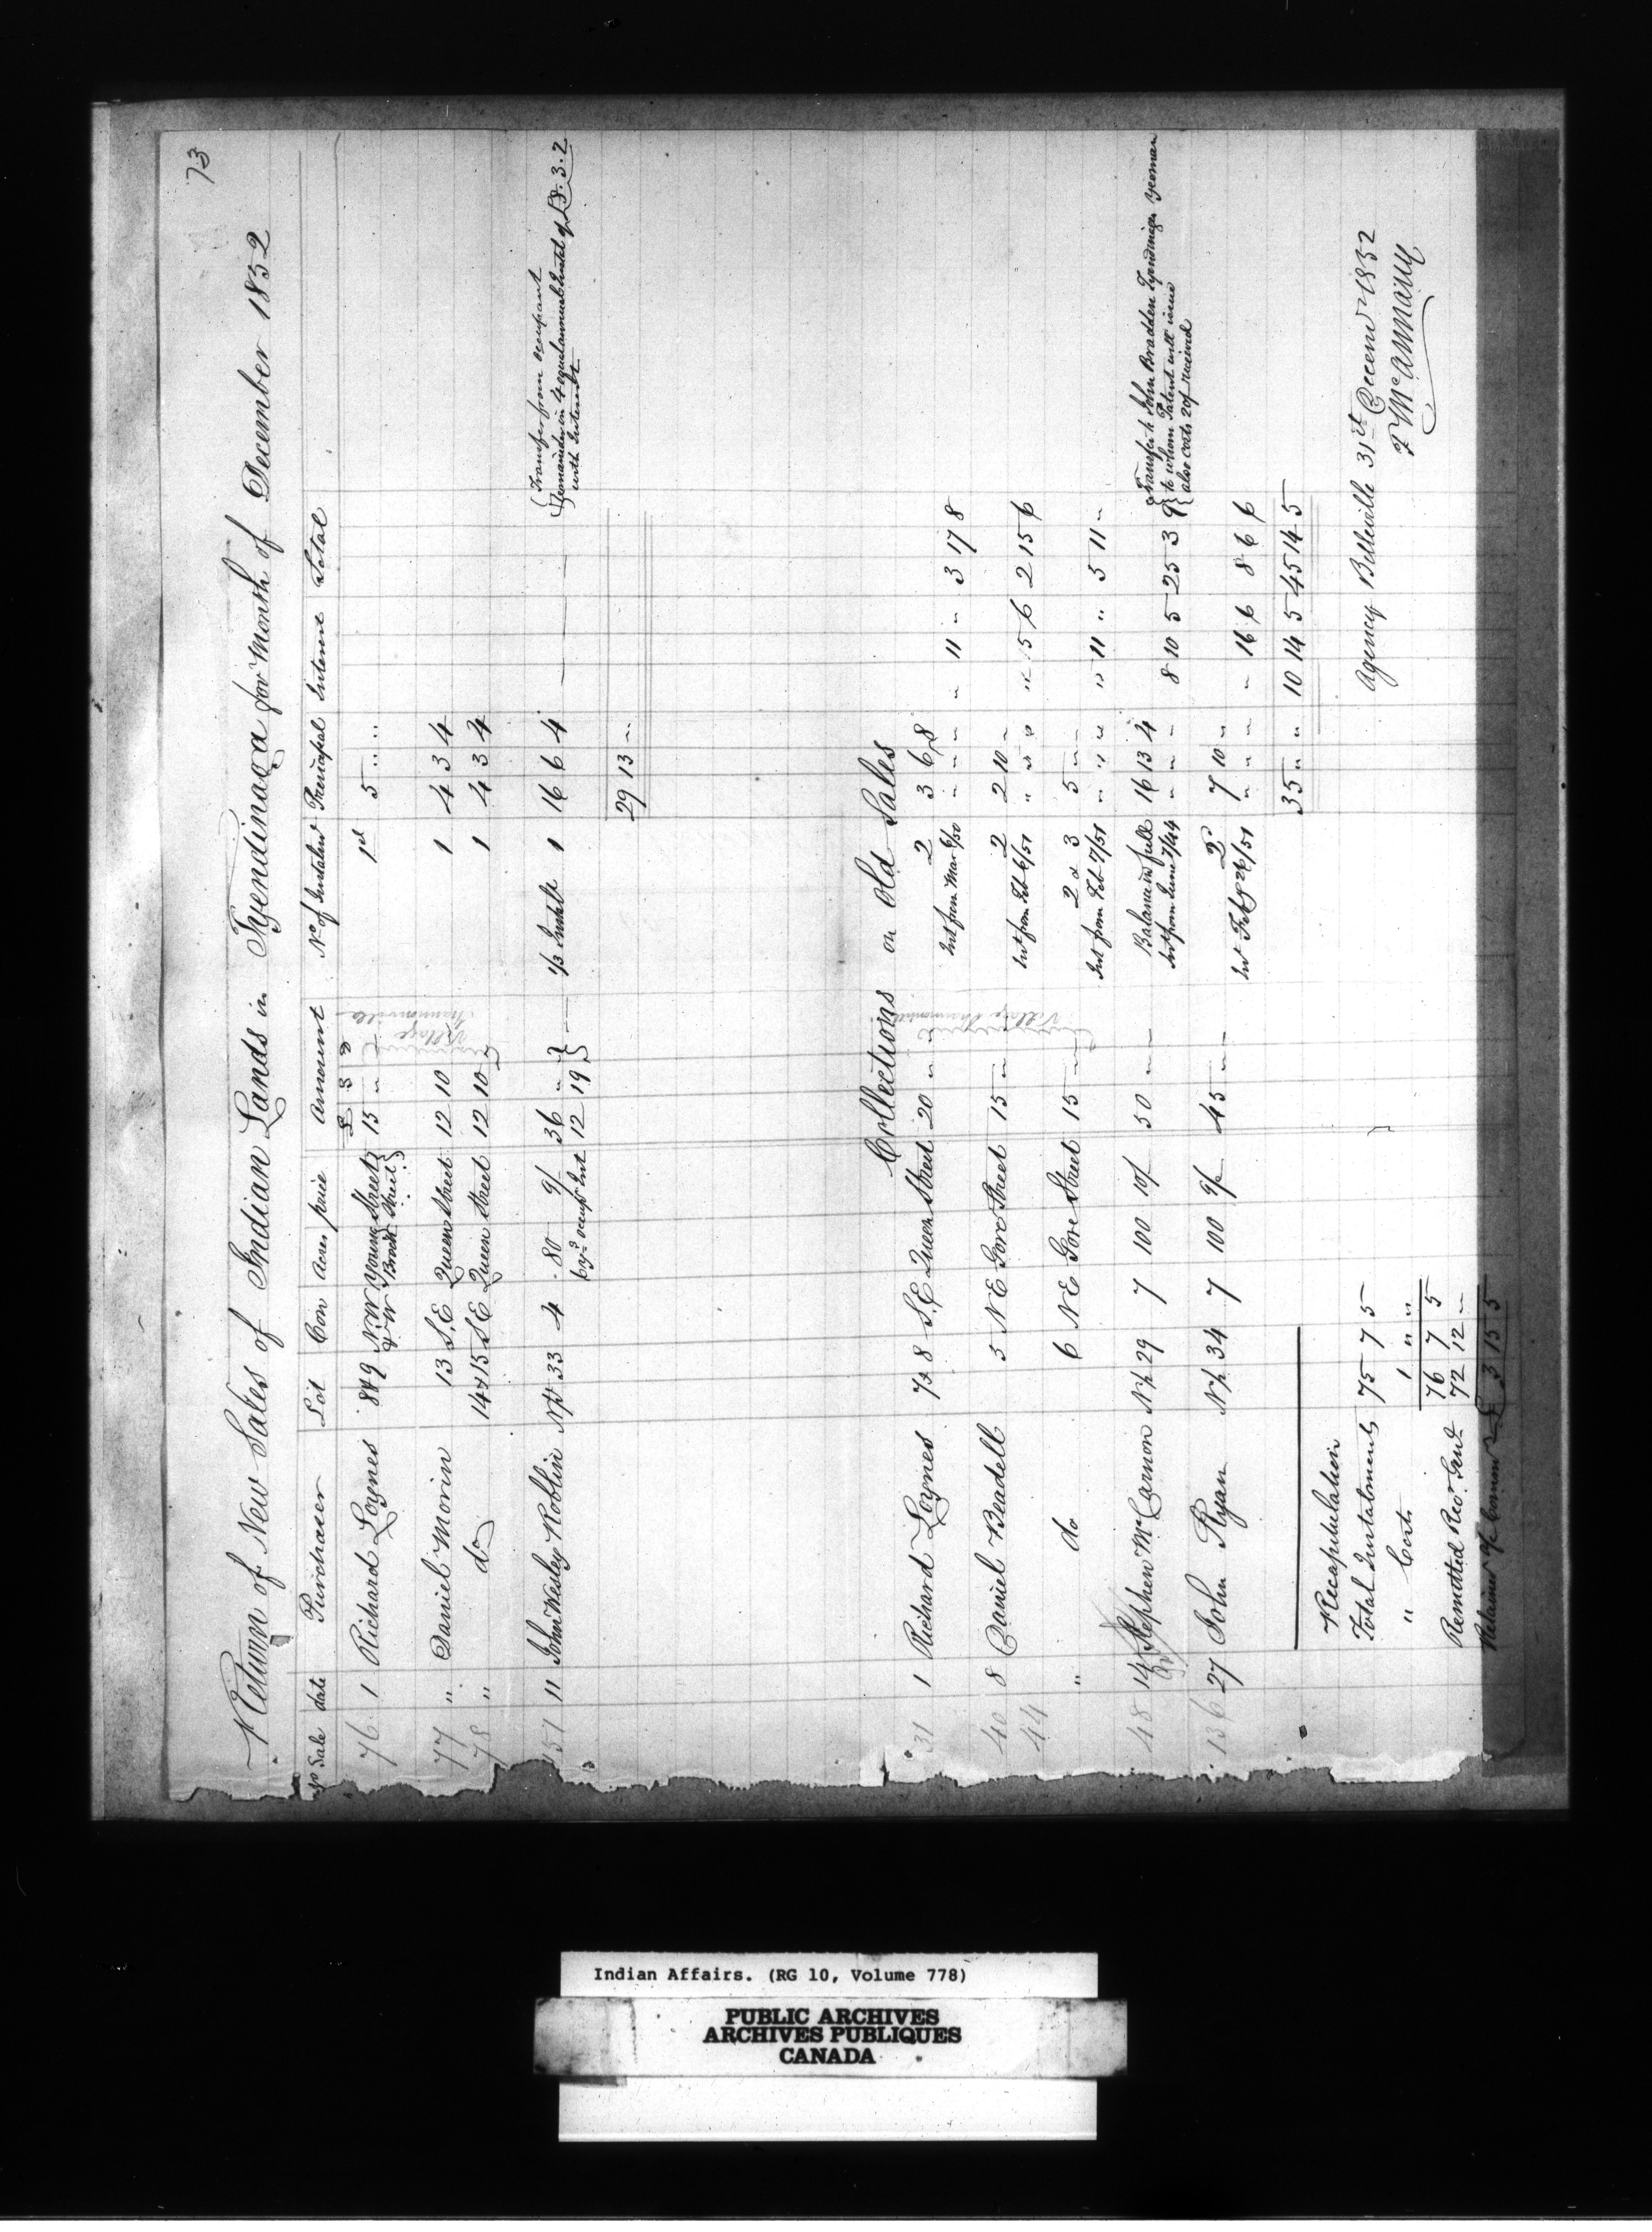 73
Return of New Sales of Indian Lands in Tyendinaga for Month of December 1852
No Sale date Purchaser Lot Con Acres price Amount No of Instalmt Principal Interest Total
£ S D
76 1 Richard Loynes 8&9 NW Young Street 15 " 1st 5 " "
& W Brook Street
77 " Daniel Morin 13 S.E Queen Street 12 10 1 4 3 4
78 " do 14&15 S.E Queen Street 12 10 1 4 3 4
Village Shannonville
151 11 John Wesley Roblin N½ 33 4 80 9/ 36 " 1/3 Instalt 1 16 6 4
6 yrs occupt Int 12 19
Transfer from occupant
Remainder in 4 equal annual Instal of £8.3.2
with Interest
29 13 "
Collections on Old Sales
31 1 Richard Loynes 7&8 S.E Queen Street 20 " " 2 3 6 8
Int from Mar 6/50 " " " " 11 " 3 17 8
40 8 Daniel Beadell 5 NE Gore Street 15 " 2 2 10 "
44 Int from Feb 6/51 " " " " 5 6 2 15 6
Village Shannonville
" do 6 NE Gore Street 15 " 2 & 3 5 " "
Int from Feb 7/51 " " " " 11 " 5 11 "
48 14 Stephen McCannon N½ 29 7 100 10/ 50 " " Balance in full 16 13 4
Int from June 7/44 " " " 8 10 5 25 3 9
Transfer to John Bradden Tyendinaga Yeoman
to whom Patent will issue
also costs 20/ received
136 27 John Ryan N½ 34 7 100 9/ 45 " " 2 7 10 "
Int Feby 26/51 " " " " 16 6 8 6 6
35 " " 10 14 5 45 14 5
Recapitulation
Total Instalments 75 7 5
" Costs 1 " "
76 7 5
Remitted Recr Genl 72 12 "
Retained a/c Commn £ 3 15 5
Agency Belleville 31st Decemr 1852
T McAnnany
Indian Affairs. (RG 10, Volume 778)
PUBLIC ARCHIVES
ARCHIVES PUBLIQUES
CANADA